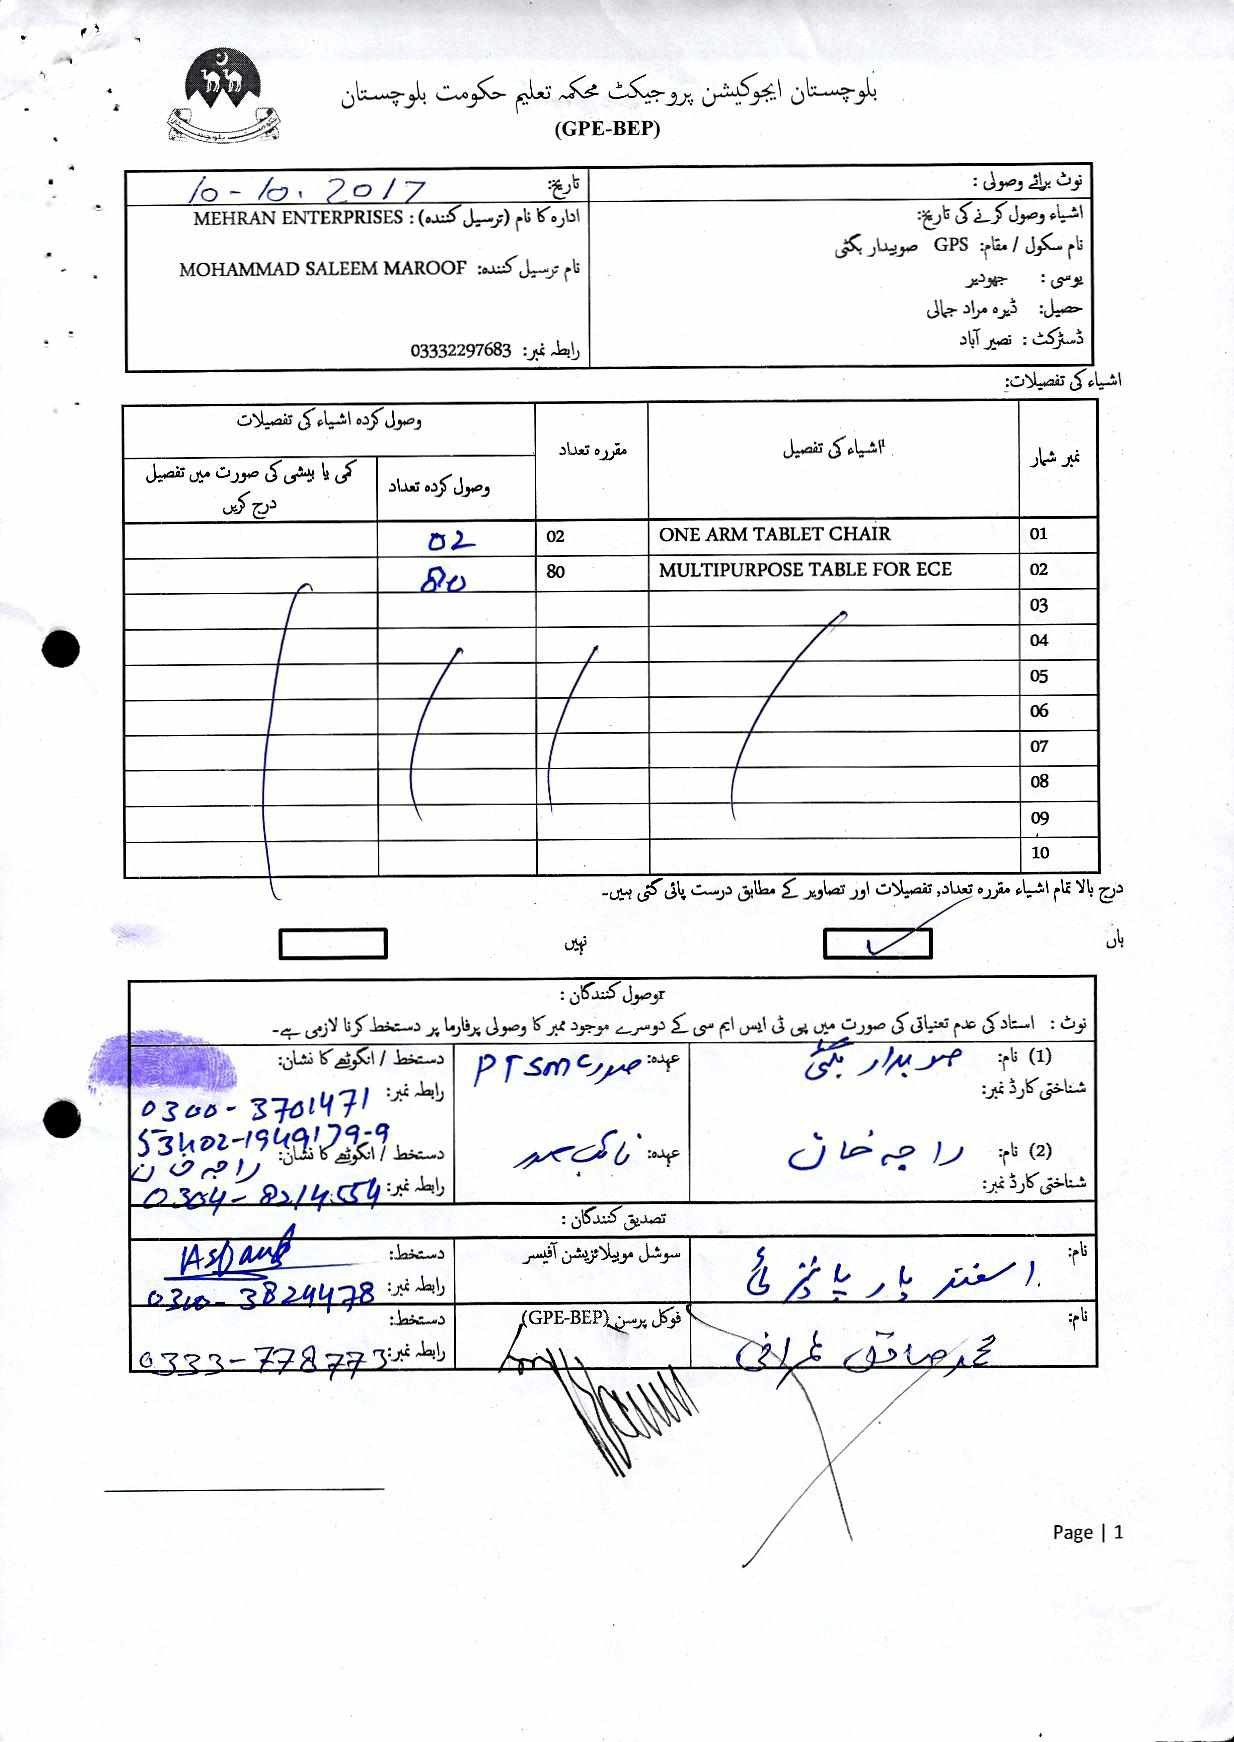 بلوچستان ایجوکیشن پروجیکٹ محکمہ تعلیم حکومت بلوچستان
(GPE-BEP)
نوٹ برائے وصولی :
اشیاء وصول کرنے کی تاریخ:
نام سکول / مقام: GPS صوبیدار بگٹی
یوسی : جھودیر
حصیل: ڈیرہ مراد جمالی
ڈسڑکٹ : نصیر آباد
تاریخ: 10-10.2017
ادارہ کا نام (ترسیل کنندہ) : MEHRAN ENTERPRISES
نام ترسیل کنندہ: MOHAMMAD SALEEM MAROOF
رابطہ نمبر: 03332297683
اشیاء کی تفصیلات:
نمبر شمار اشیاء کی تفصیل مقررہ تعداد وصول کردہ اشیاء کی تفصیلات
وصول کردہ تعداد کمی یا بیشی کی صورت میں تفصیل درج کریں
01 ONE ARM TABLET CHAIR 02 02
02 MULTIPURPOSE TABLE FOR ECE 80 80
03
04
05
06
07
08
09
10
درج بالا تمام اشیاء مقررہ تعداد, تفصیلات اور تصاویر کے مطابق درست پائی گئی ہیں۔
ہاں نہیں
وصول کنندگان :
نوٹ : استاد کی عدم تعنیاتی کی صورت میں پی ٹی ایس ایم سی کے دوسرے موجود ممبر کا وصولی پرفارما پر دستخط کرنا لازمی ہے۔
(1) نام: صوبدار بگٹی عہدہ: صدر PTSMC دستخط / انگوٹھے کا نشان:
شناختی کارڈ نمبر: رابطہ نمبر: 0300-3701471
53402-1949179-9
(2) نام: راجہ خان عہدہ: نائب صدر دستخط / انگوٹھے کا نشان: راجہ خان
شناختی کارڈ نمبر: رابطہ نمبر: 0304-8214554
تصدیق کنندگان :
نام: اسفند یار پانیزئی سوشل موبیلائزیشن آفیسر دستخط:
رابطہ نمبر: 0310-3824478
نام: محمد صادق عمرانی فوکل پرسن (GPE-BEP) دستخط:
رابطہ نمبر: 0333-778773
Page | 1